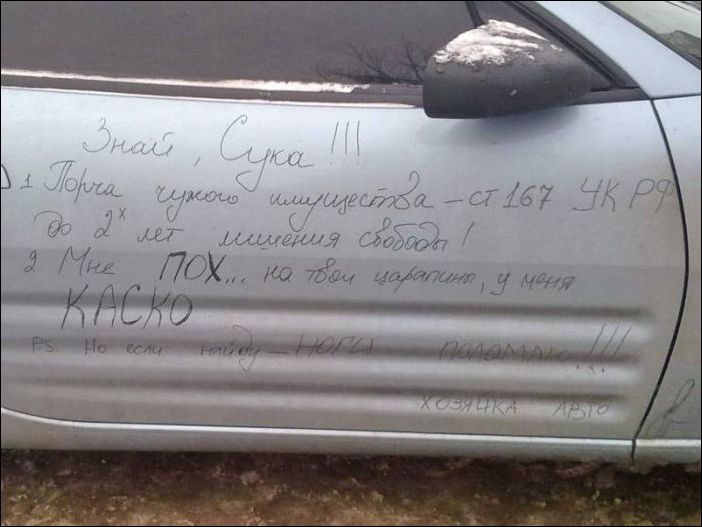 Знай, Сука!!!
1 Порча чужого имущества – ст 167 УК РФ
до 2х лет лишения свободы!
2 Мне ПОХ... на твои царапины, у меня
КАСКО
P.S. Но если найду – НОГИ ПОЛОМАЮ!!!
ХОЗЯЙКА АВТО